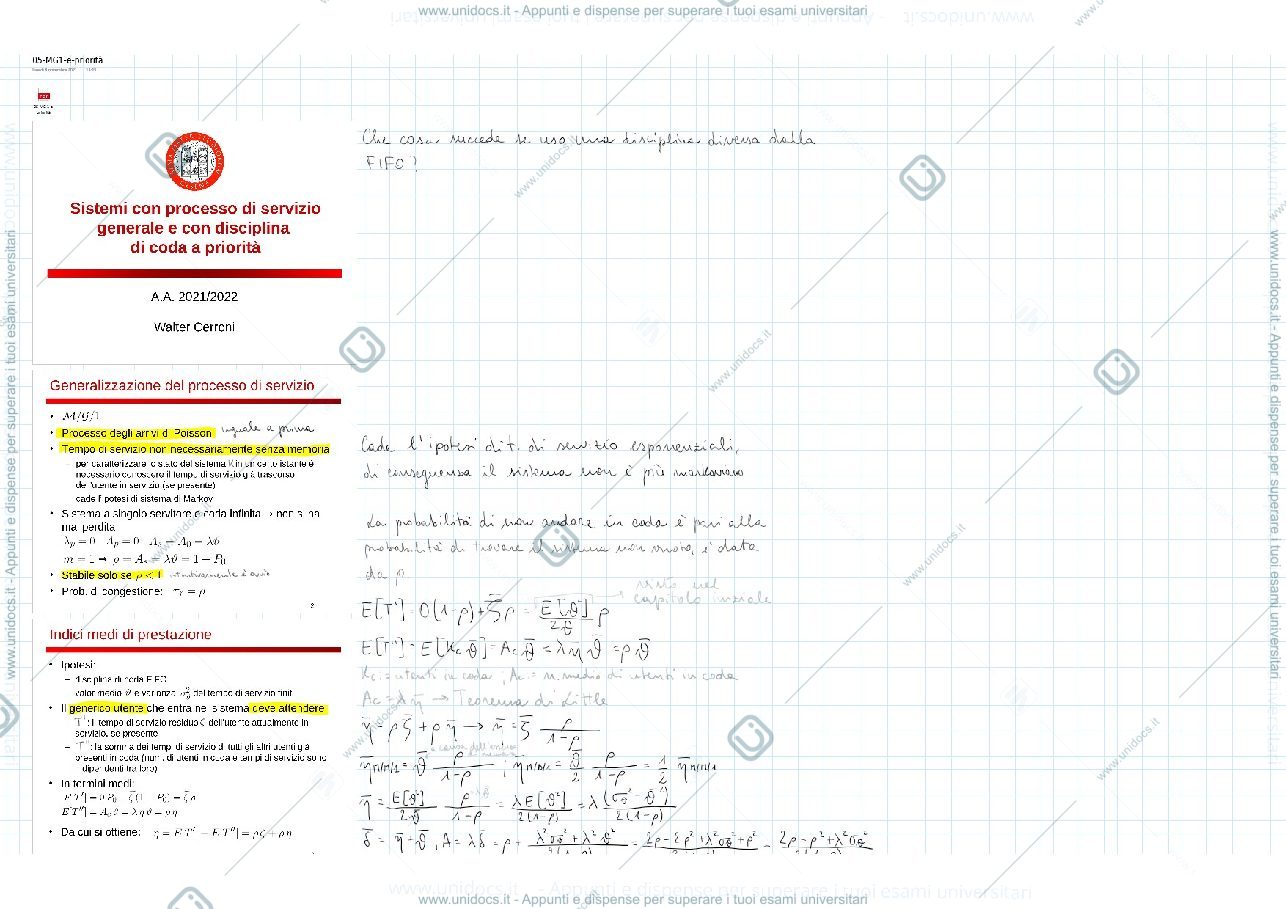 www.unidocs.it - Appunti e dispense per superare i tuoi esami universitari
05-MG1-e-priorità
Che cosa succede se uso una disciplina diversa dalla
FIFO?
Sistemi con processo di servizio
generale e con disciplina
di coda a priorità
A.A. 2021/2022
Walter Cerroni
Generalizzazione del processo di servizio
• M/G/1
• Processo degli arrivi di Poisson uguale a prima
• Tempo di servizio non necessariamente senza memoria
– per caratterizzare lo stato del sistema in un certo istante è
necessario conoscere il tempo di servizio già trascorso
dell'utente in servizio (se presente)
– cade l'ipotesi di sistema di Markov
• Sistema a singolo servitore e coda infinita → non si ha
mai perdita
λp = 0 Ap = 0 As = A0 = λϑ
m = 1 ⇒ ρ = As = λϑ = 1 − P0
• Stabile solo se ρ < 1 intuitivamente è ovvio
• Prob. di congestione: πr = ρ
Cade l'ipotesi di t. di servizio esponenziali,
di conseguenza il sistema non è più markoviano
La probabilità di non andare in coda è pari alla
probabilità di trovare il sistema non vuoto, è data
da ρ
visto nel
capitolo iniziale
E[T'] = 0(1-ρ) + ζ̄ρ = E[ϑ²]/2ϑ̄ ρ
E[T''] = E[Kc ϑ̄] = Ac ϑ̄ = λ η̄ ϑ̄ = ρ ϑ̄
Kc = utenti in coda ; Ac = n. medio di utenti in coda
Ac = λ η̄ → Teorema di Little
η̄ = ρ ζ̄ + ρ η̄ → η̄ = ζ̄ ρ/(1-ρ)
η̄ M/M/1 = ϑ̄ ρ/(1-ρ) ; η̄ M/D/1 = ϑ̄/2 ρ/(1-ρ) = 1/2 η̄ M/M/1
η̄ = E[ϑ²]/2ϑ̄ ρ/(1-ρ) = λE[ϑ²]/2(1-ρ) = λ (σϑ² - ϑ̄²)/2(1-ρ)
δ̄ = η̄ + ϑ̄ , A = λδ̄ = ρ +
Indici medi di prestazione
• Ipotesi:
– disciplina di coda FIFO
– valor medio ϑ e varianza σϑ² del tempo di servizio finiti
• Il generico utente che entra nel sistema deve attendere
– T': il tempo di servizio residuo ζ dell'utente attualmente in
servizio, se presente
– T'': la somma dei tempi di servizio di tutti gli altri utenti già
presenti in coda (num. di utenti in coda e tempi di servizio sono
indipendenti tra loro)
• In termini medi:
E[T'] = 0 P0 + ζ(1 − P0) = ζ ρ
E[T''] = Ac ϑ = λ η ϑ = ρ η
• Da cui si ottiene: η = E[T'] + E[T''] = ρ ζ + ρ η
www.unidocs.it - Appunti e dispense per superare i tuoi esami universitari